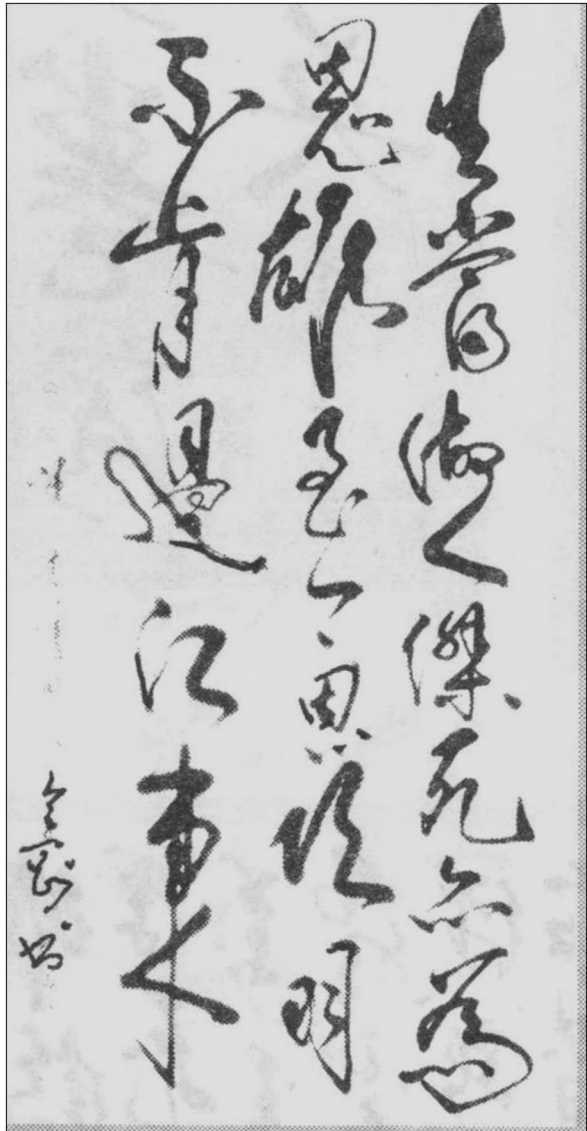 生當做人傑死亦為
鬼雄至今思項羽
不肯過江東
书